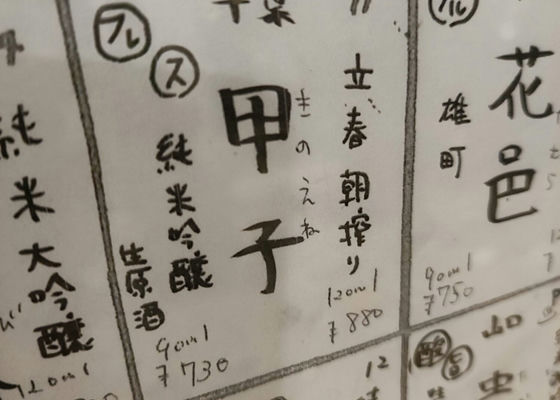 花邑
雄町
90ml
¥750
立春朝搾り
120ml
¥880
甲子
きのえね
純米吟醸
生原酒
90ml
¥730
フル
ス
純米大吟醸
120ml
山
酸
旨
12